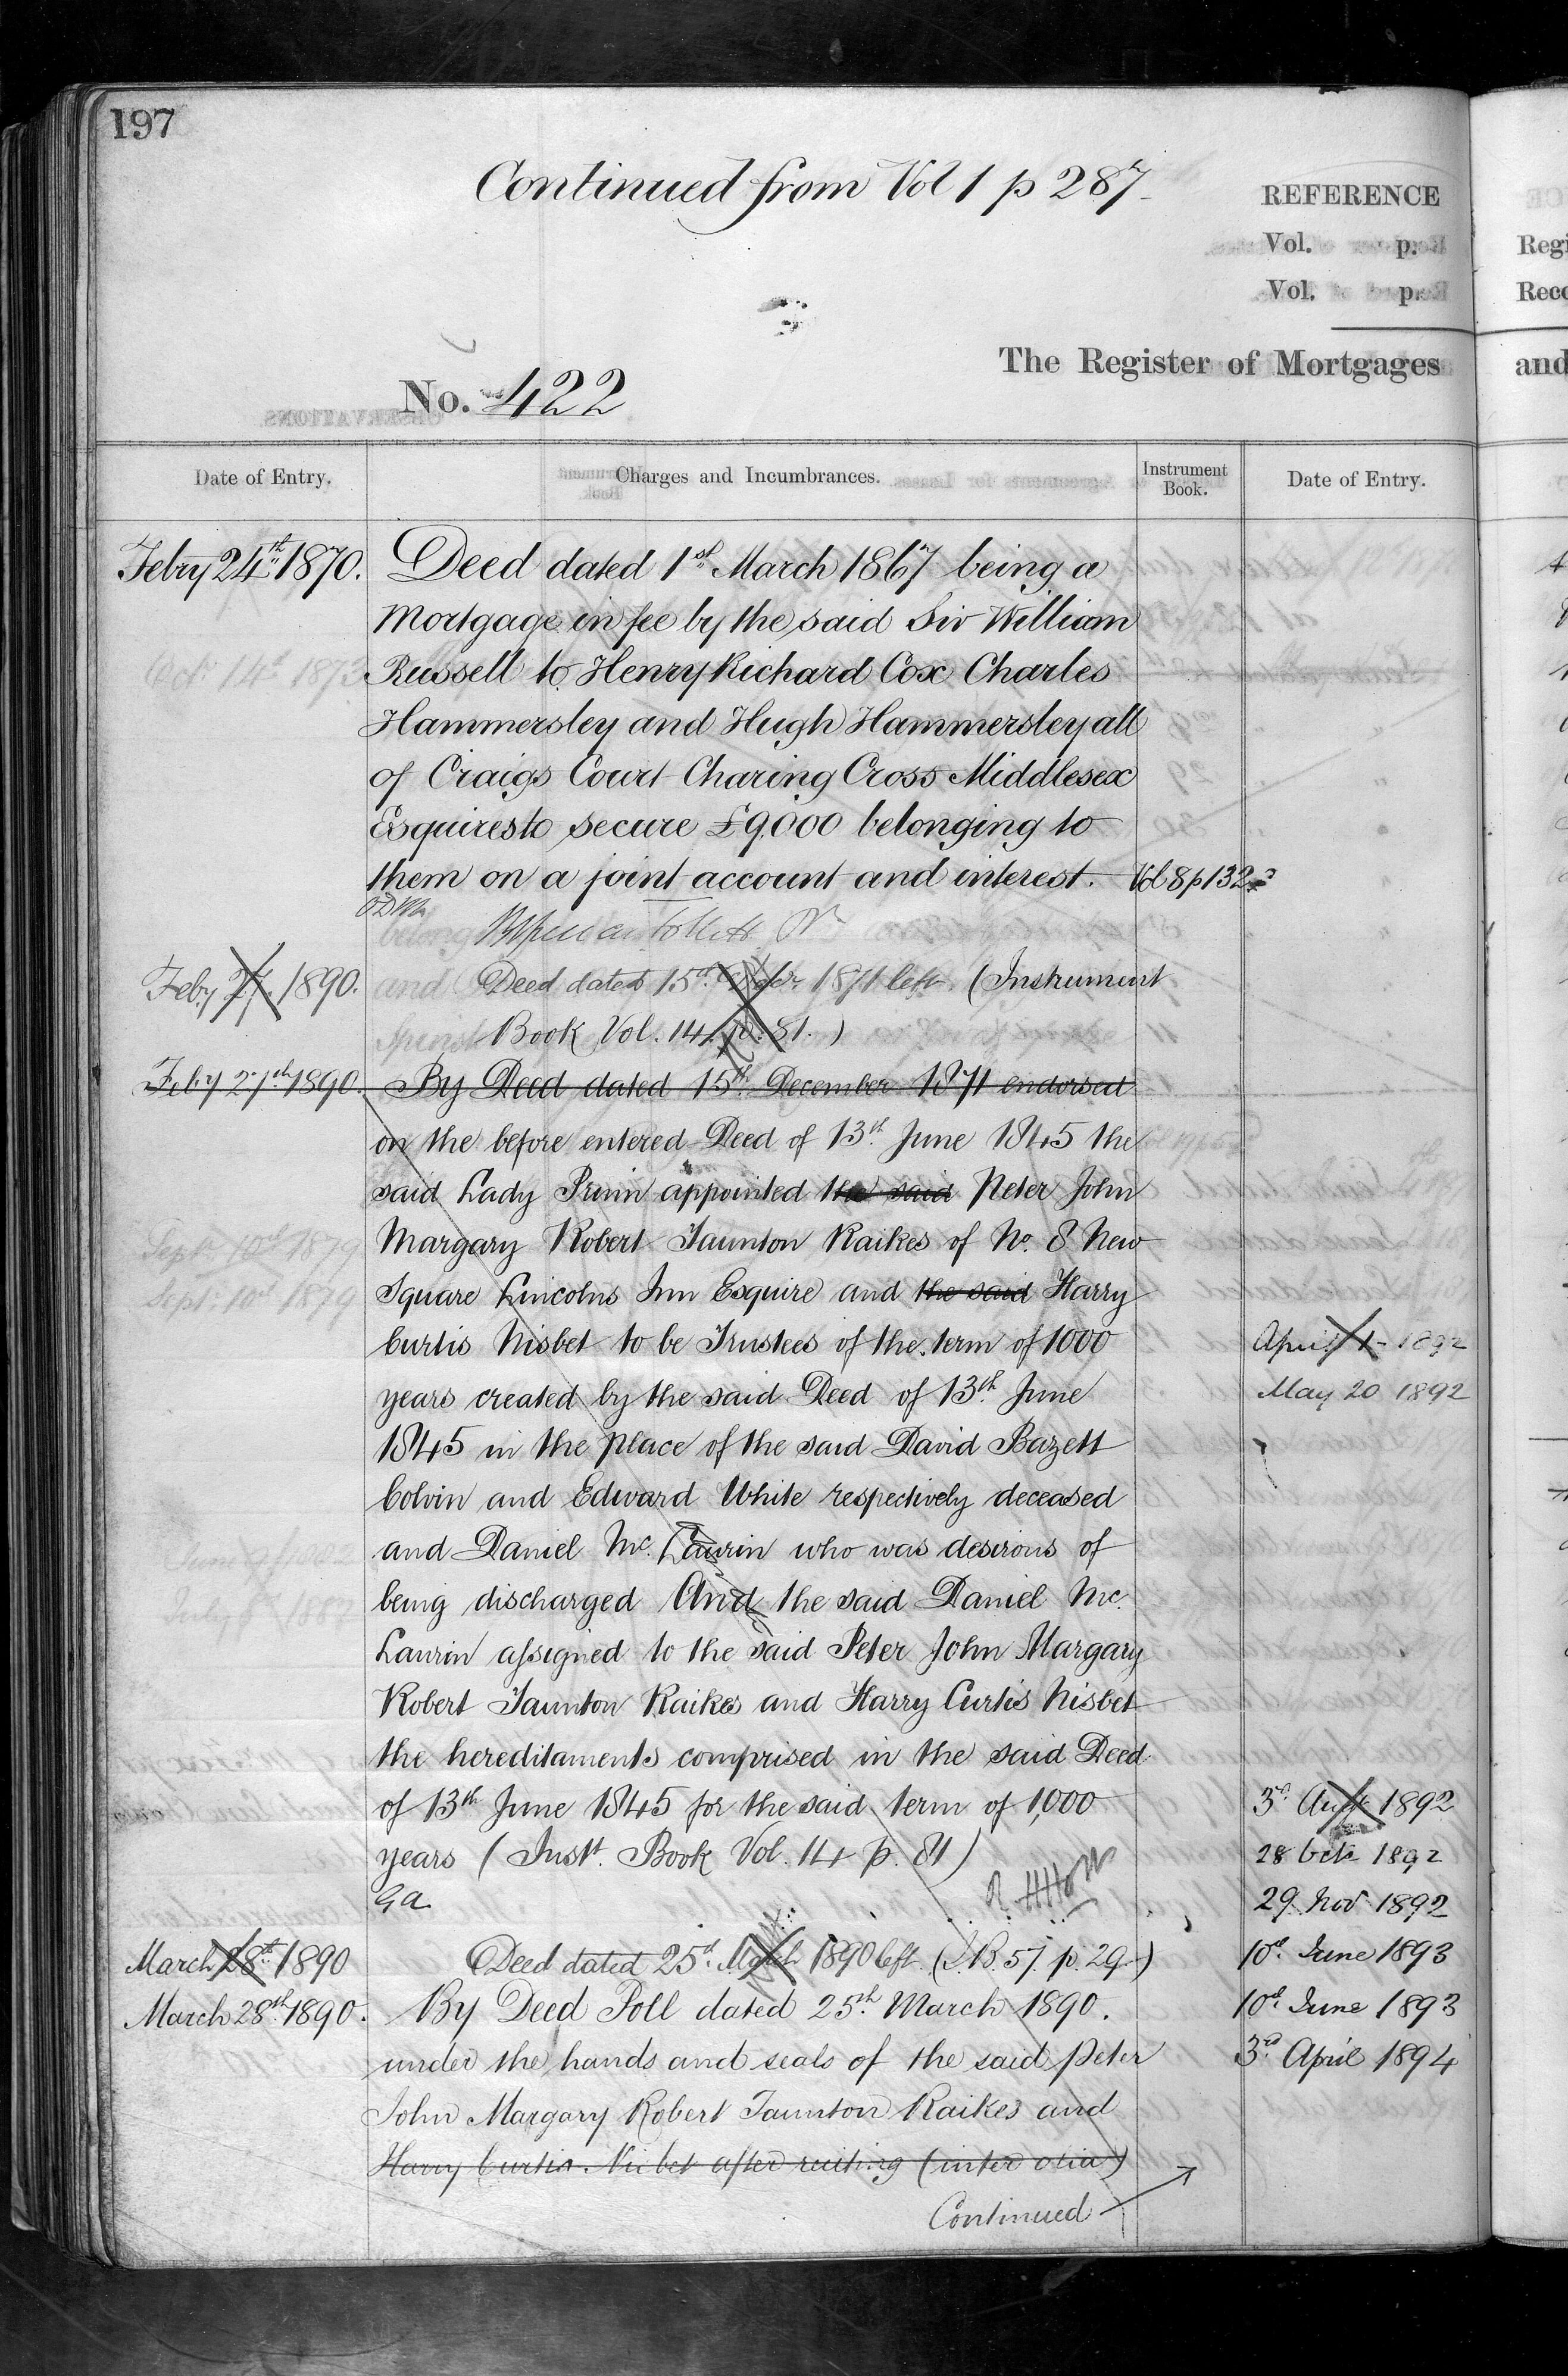 197
Continued from Vol 1 p 287
REFERENCE
Vol. p.
Vol. p.
The Register of Mortgages
No. 422
Date of Entry.
Charges and Incumbrances.
Instrument Book.
Date of Entry.
Febry 24th 1870. Deed dated 1st March 1867 being a
Mortgage in fee by the said Sir William
Russell to Henry Richard Cox Charles
Hammersley and Hugh Hammersley all
of Craigs Court Charing Cross Middlesex
Esquires to secure £9000 belonging to
them on a joint account and interest. Vol 8 p 132
Feby 27. 1890. Deed dated 15th 1871 left (Instrument
Book Vol. 14. p. 81.)
Feby 27th 1890. By Deed dated 15th December 1871 endorsed
on the before entered Deed of 13th June 1845 the
said Lady Prinn appointed the said Peter John
Margary Robert Taunton Raikes of No. 8 New
Square Lincolns Inn Esquire and the said Harry
Curtis Nisbet to be Trustees of the term of 1000
years created by the said Deed of 13th June
1845 in the place of the said David Bazett
Colvin and Edward White respectively deceased
and Daniel Mc. Laurin who was desirous of
being discharged And the said Daniel Mc.
Laurin assigned to the said Peter John Margary
Robert Taunton Raikes and Harry Curtis Nisbet
the hereditaments comprised in the said Deed
of 13th June 1845 for the said term of 1,000
years (Inst. Book Vol. 14 p. 81)
March 28th 1890 Deed dated 25th March 1890 left (I.B. 57. p. 29)
March 28th 1890. By Deed Poll dated 25th March 1890.
under the hands and seals of the said Peter
John Margary Robert Taunton Raikes and
Harry Curtis Nisbet after reciting (inter alia)
Continued
April 1 1892
May 20 1892
3d Augt 1892
28 Oct 1892
29 Nov 1892
10th June 1893
10th June 1893
3rd April 1894
Oct. 14th 1873
Sept. 10th 1879
Sept. 10th 1879
Regi
Reco
and